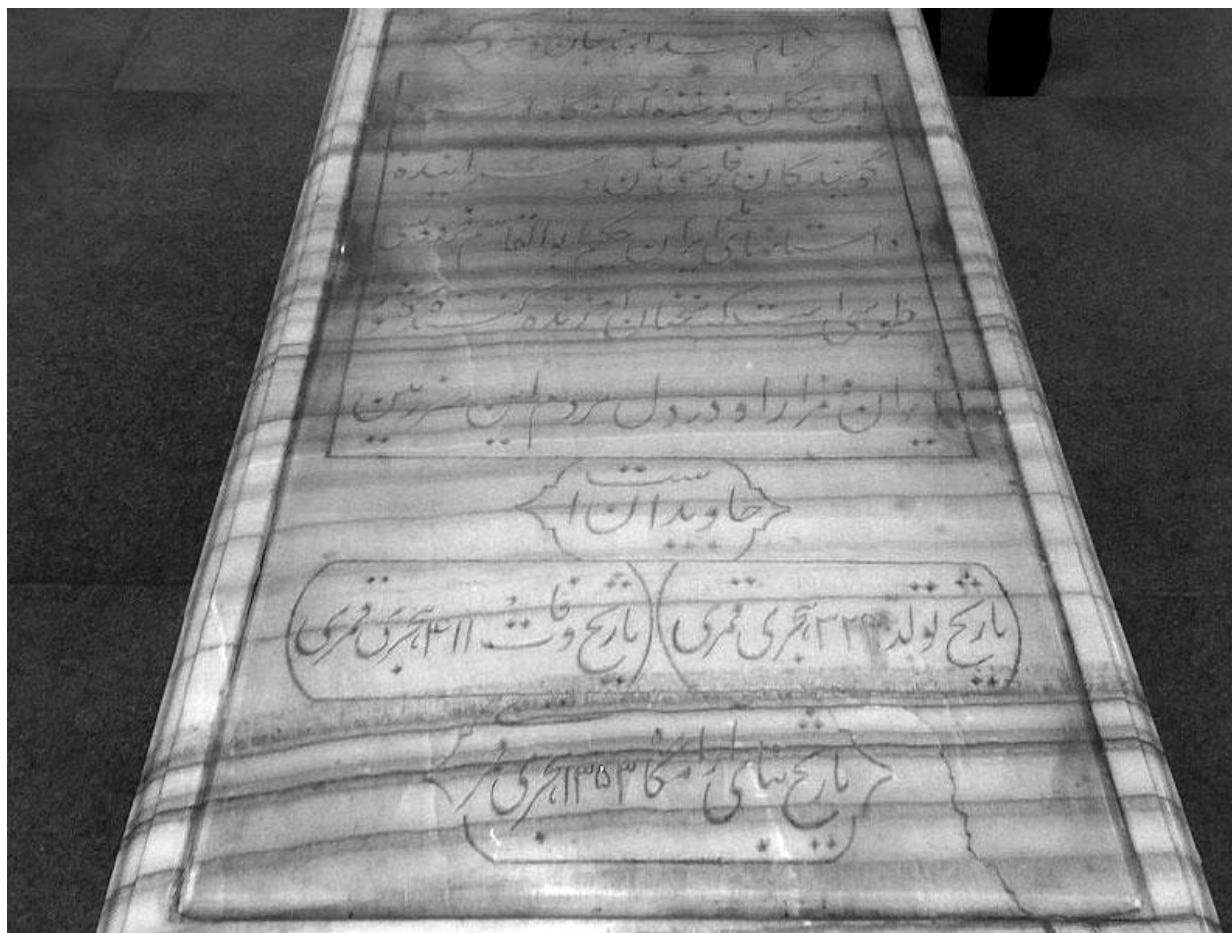 بنام خداوند جان و خرد
این مکان فرخنده آرامگاه استاد
گویندگان فارسی زبان و سراینده
داستانهای ملی ایران حکیم ابوالقاسم فردوسی
طوسی است که سخنان او زنده کننده کشور
ایران و مزار او در دل مردم این سرزمین
جاویدان است
تاریخ تولد ۳۲۳ هجری قمری
تاریخ وفات ۴۱۱ هجری قمری
تاریخ بنای آرامگاه ۱۳۵۳ هجری قمری